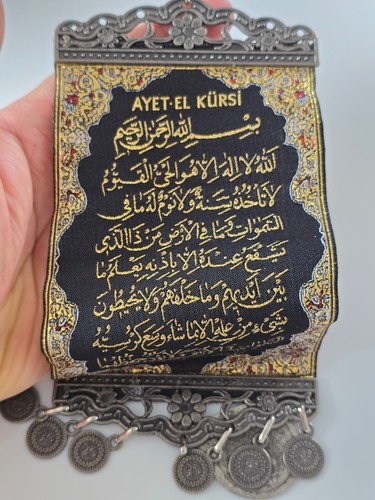 AYET-EL KÜRSİ
بسم الله الرحمن الرحيم
الله لا اله الا هو الحي القيوم
لا تأخذه سنة ولا نوم له ما في
السموات وما في الارض من ذا الذي
يشفع عنده الا باذنه يعلم ما
بين ايديهم وما خلفهم ولا يحيطون
بشيء من علمه الا بما شاء وسع كرسيه